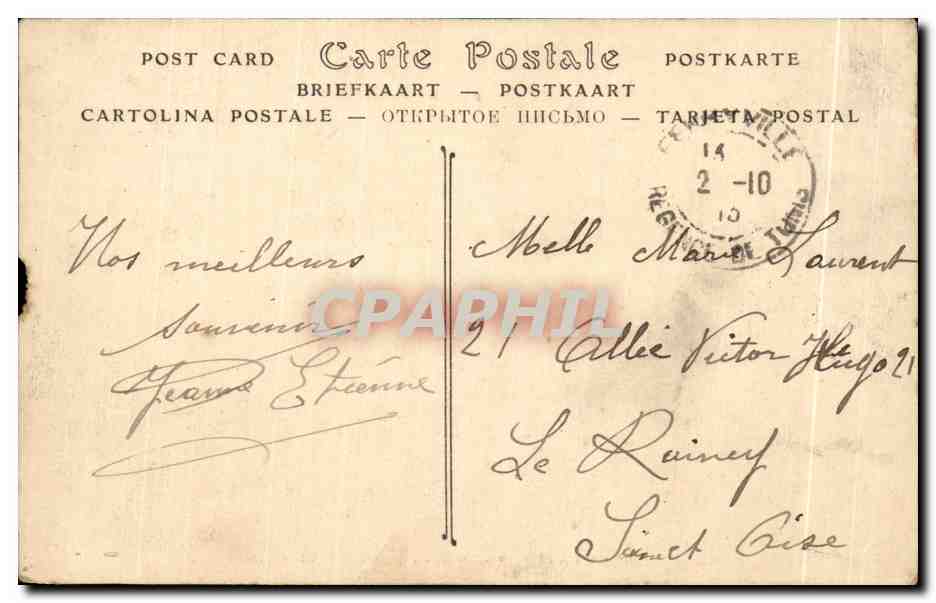 POST CARD Carte Postale POSTKARTE
BRIEFKAART — POSTKAART
CARTOLINA POSTALE — ОТКРЫТОЕ ПИСЬМО — TARJETA POSTAL
FERRYVILLE
2 -10
REGENCE DE TUNIS
Nos meilleurs
souvenirs
Jeanne Etiénne
CPAPHIL
Melle Marie Laurent
21 Allée Victor Hugo 21
Le Rainey
Seine et Oise